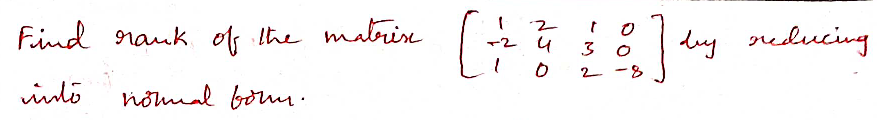 Find rank of the matrix [ 1 2 1 0
-2 4 3 0
1 0 2 -8 ] by reducing
into normal form.